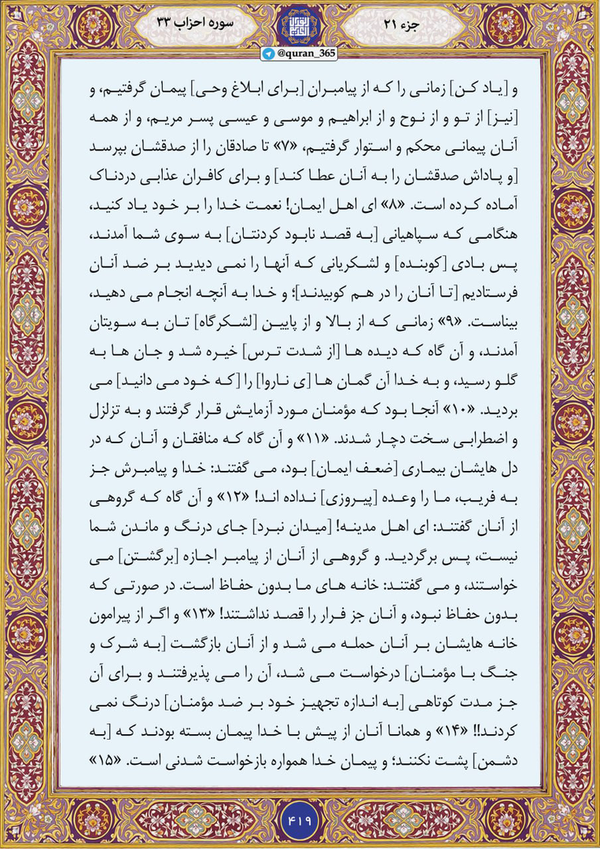 جزء ۲۱
سوره احزاب ۳۳
@quran_365
و [یاد کن] زمانی را که از پیامبران [برای ابلاغ وحی] پیمان گرفتیم، و
[نیز] از تو و از نوح و از ابراهیم و موسی و عیسی پسر مریم، و از همه
آنان پیمانی محکم و استوار گرفتیم، «۷» تا صادقان را از صدقشان بپرسد
[و پاداش صدقشان را به آنان عطا کند] و برای کافران عذابی دردناک
آماده کرده است. «۸» ای اهل ایمان! نعمت خدا را بر خود یاد کنید،
هنگامی که سپاهیانی [به قصد نابود کردنتان] به سوی شما آمدند،
پس بادی [کوبنده] و لشکریانی که آنها را نمی دیدید بر ضد آنان
فرستادیم [تا آنان را در هم کوبیدند]؛ و خدا به آنچه انجام می دهید،
بیناست. «۹» زمانی که از بالا و از پایین [لشکرگاه] تان به سویتان
آمدند، و آن گاه که دیده ها [از شدت ترس] خیره شد و جان ها به
گلو رسید، و به خدا آن گمان ها [ی ناروا] را [که خود می دانید] می
بردید. «۱۰» آنجا بود که مؤمنان مورد آزمایش قرار گرفتند و به تزلزل
و اضطرابی سخت دچار شدند. «۱۱» و آن گاه که منافقان و آنان که در
دل هایشان بیماری [ضعف ایمان] بود، می گفتند: خدا و پیامبرش جز
به فریب، ما را وعده [پیروزی] نداده اند! «۱۲» و آن گاه که گروهی
از آنان گفتند: ای اهل مدینه! [میدان نبرد] جای درنگ و ماندن شما
نیست، پس برگردید. و گروهی از آنان از پیامبر اجازه [برگشتن] می
خواستند، و می گفتند: خانه های ما بدون حفاظ است. در صورتی که
بدون حفاظ نبود، و آنان جز فرار را قصد نداشتند! «۱۳» و اگر از پیرامون
خانه هایشان بر آنان حمله می شد و از آنان بازگشت [به شرک و
جنگ با مؤمنان] درخواست می شد، آن را می پذیرفتند و برای آن
جز مدت کوتاهی [به اندازه تجهیز خود بر ضد مؤمنان] درنگ نمی
کردند!! «۱۴» و همانا آنان از پیش با خدا پیمان بسته بودند که [به
دشمن] پشت نکنند؛ و پیمان خدا همواره بازخواست شدنی است. «۱۵»
۴۱۹